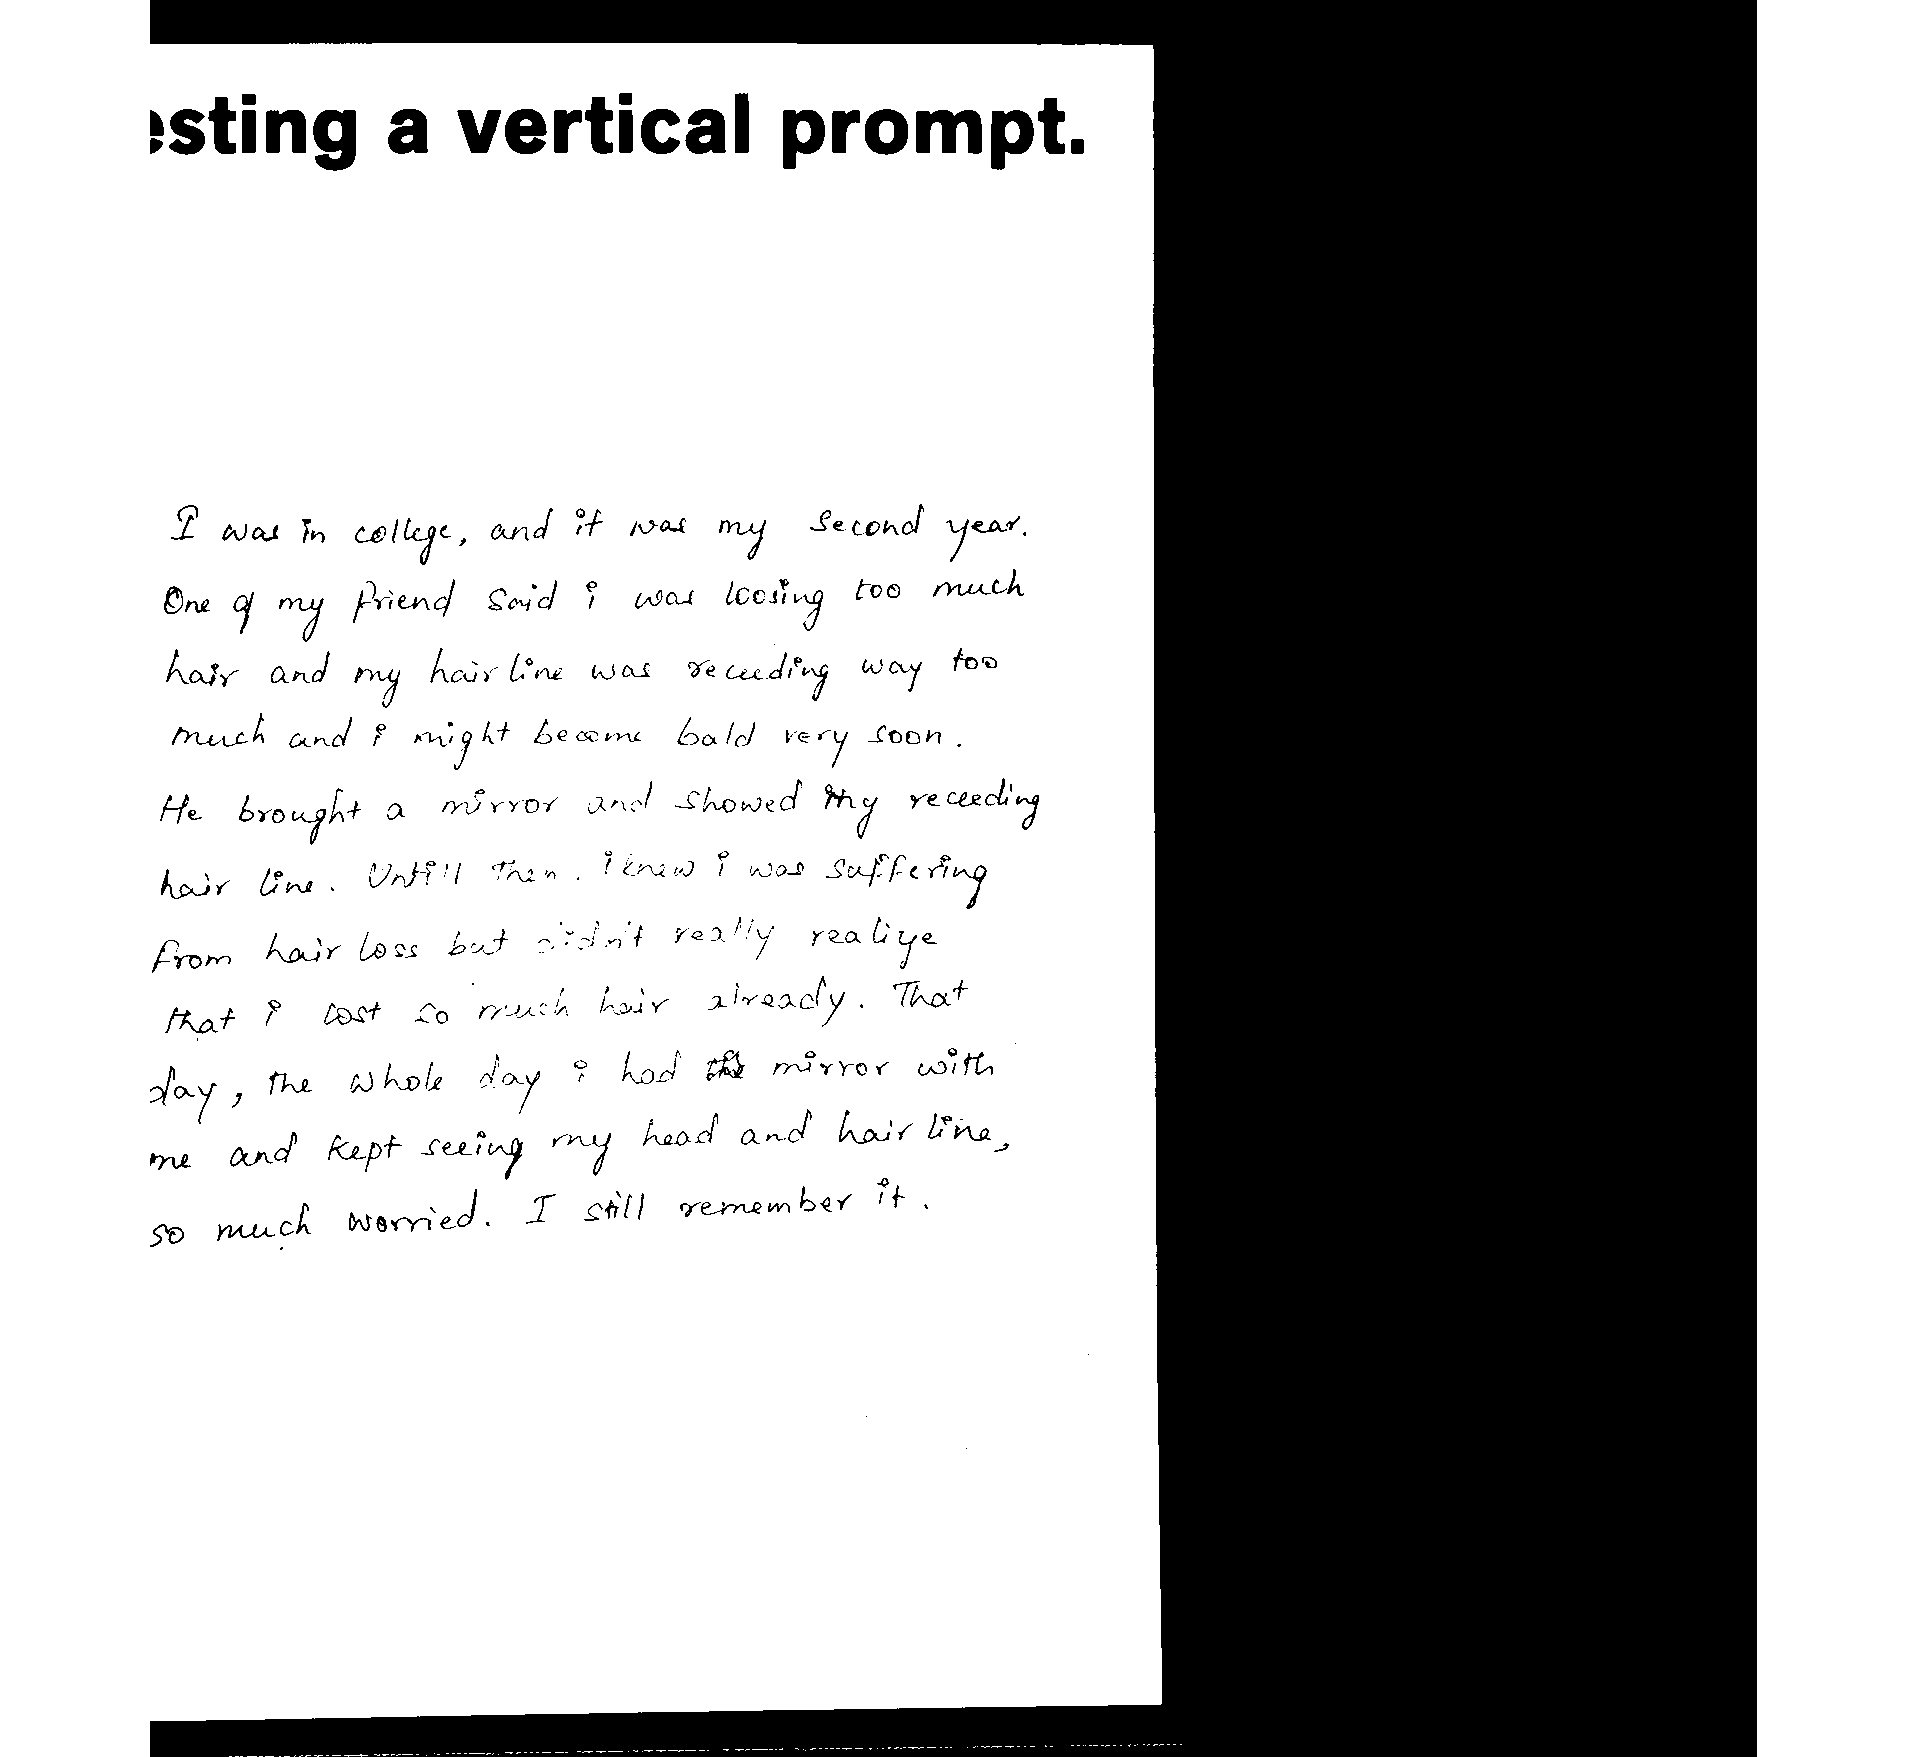 esting a vertical prompt.
I was in college, and it was my second year.
One of my friend said i was loosing too much
hair and my hair line was receeding way too
much and i might become bald very soon.
He brought a mirror and showed my receeding
hair line. Untill then. i knew i was suffering
from hair loss but didn't really realize
that i lost so much hair already. That
day, the whole day i had the mirror with
me and kept seeing my head and hair line,
so much worried. I still remember it.